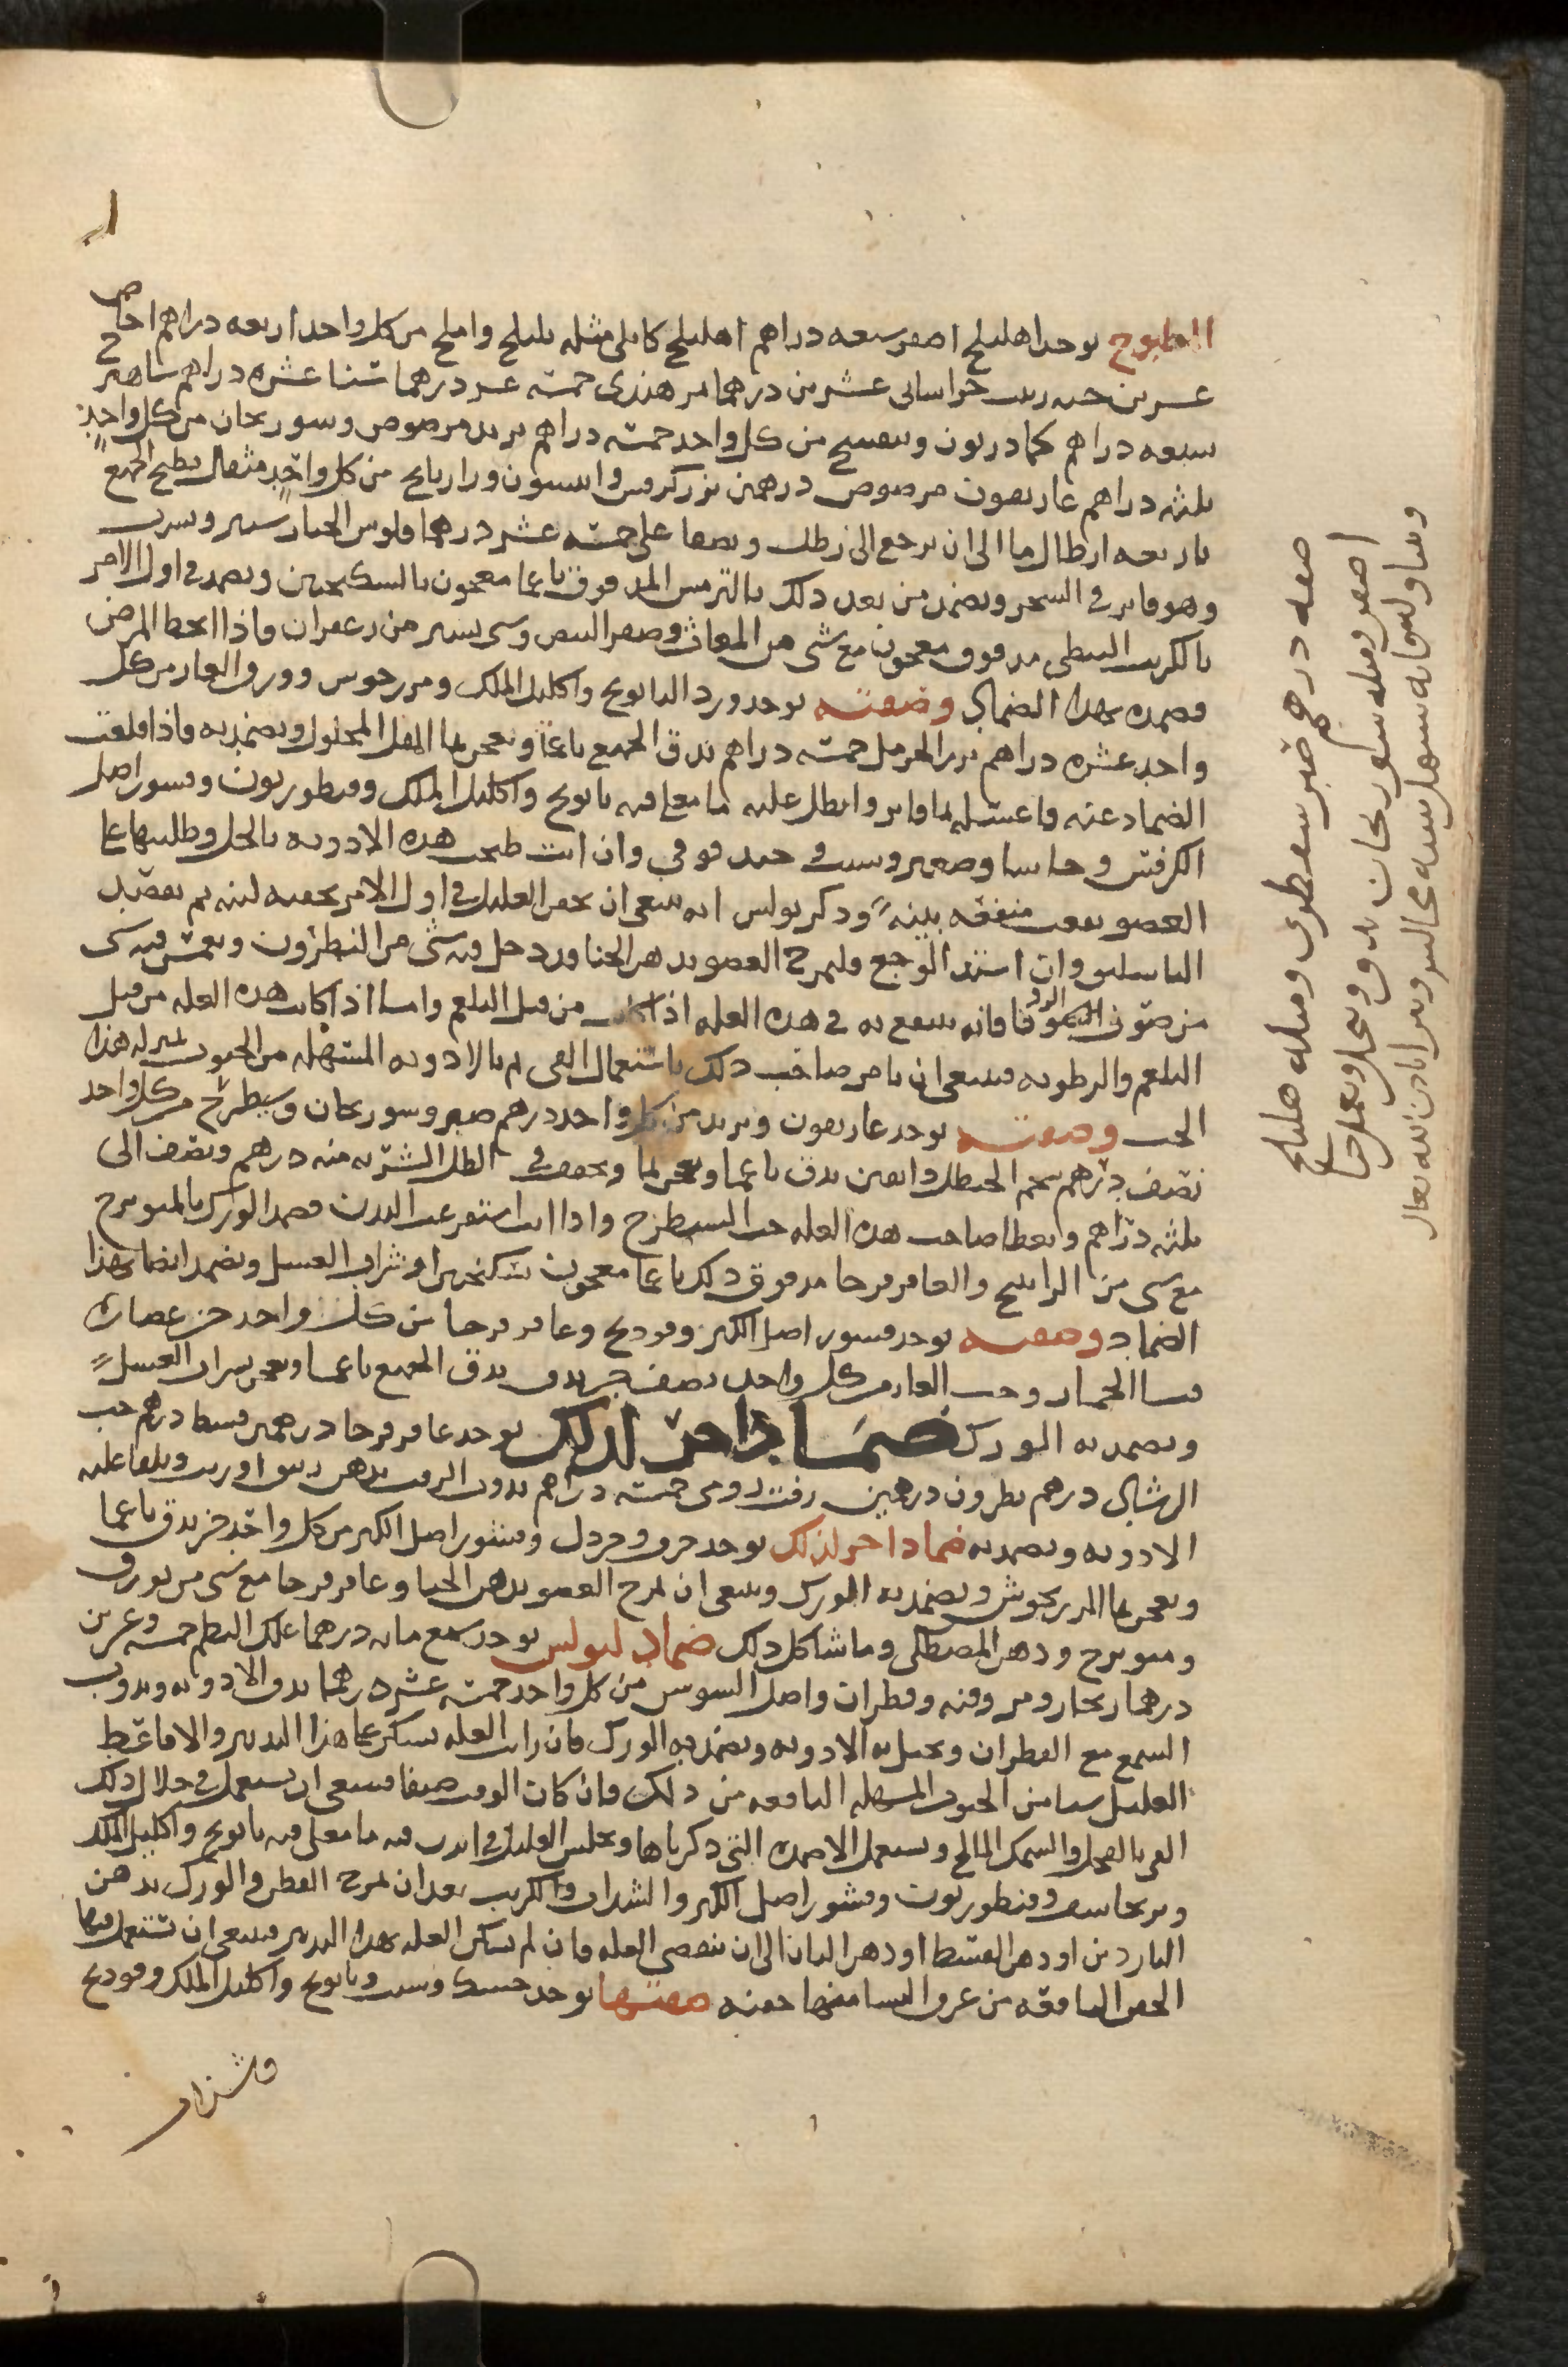 المطبوخ يوخد اهليلج اصفر سبعه دراهم اهليلج كابلي مثله بليلج واملج من كل واحد اربعه دراهم اجاص
عشرين حبه زبيب خراساني عشرين درهما تمر هندي خمسة عشر درهما سنا عشره دراهم شاهترج
سبعه دراهم كمادريون وبنفسج من كل واحد خمسة دراهم تربد مرضوض وسورنجان من كل واحد
ثلثه دراهم غاريقون مرضوض درهمين بزر كرفس وانيسون ورازيانج من كل واحد مثقال يطبخ الجميع
باربعه ارطال ما الى ان يرجع الى رطل ويصفا على خمسة عشر درهما فلوس الخيار شنبر ويشرب
وهو فاتر في السحر ويضمد من بعد ذلك بالترمس المدقوق ناعما معجون بالسكنجبين ويضمد في اول الامر
بالكرنب النبطي مدقوق معجون مع شي من المغاث وصفر البيض وشي يسير من زعفران فاذا انحط المرض
فضمده بهذا الضماد وصفته يوخد ورد البابونج واكليل الملك ومرزجوش وورق الغار من كل
واحد عشره دراهم بزر الحرمل خمسة دراهم يدق الجميع ناعما ويعجن بما المقل المحلول ويضمد به فاذا قلعت
الضماد عنه فاغسله بما فاتر وانطل عليه ما مغلى فيه بابونج واكليل الملك وقنطوريون وقشور اصل
الكرفس وحاشا وصعتر وشبت وحندقوقي وان انت طبخت هذه الادويه بالخل وطليتها على
العضو نفعت منفعه بينه وذكر بولس انه ينبغي ان يحقن العليل في اول الامر بحقنه لينه ثم بفصد
الباسليق وان اشتد الوجع فليمرخ العضو بدهن الحنا وقد دخل فيه شي من النطرون ويغمس فيه شي
من صوف الزوفا فانه ينتفع به في هذه العله اذا كانت من قبل البلغم واما اذا كانت هذه العله من قبل
البلغم والرطوبه فينبغي ان يامر صاحب ذلك باستعمال القي ثم بالادويه المسهله من الحبوب بمنزله هذا
الحب وصفته يوخد غاريقون وتربد من كل واحد درهم صبر وسورنجان وشيطرج من كل واحد
نصف درهم شحم الحنظل دانقين يدق ناعما ويعجن بما ويجفف في الظل الشربه منه درهم ونصف الى
ثلثه دراهم ويعطا صاحب هذه العله حب الشيطرج واذا انت استفرغت البدن فضمد الورك بالميويزج
مع شي من الراتينج والعاقرقرحا مدقوق ذلك ناعما معجون بسكنجبين او شراب العسل ويضمد ايضا بهذا
الضماد وصفته يوخد قشور اصل الكبر وفودنج وعاقرقرحا من كل واحد جز عصاره
قثا الحمار وحب الغار من كل واحد نصف جز يدق الجميع ناعما ويعجن بشراب العسل
ويضمد به الورك ضمادا اخر لذلك يوخد عاقرقرحا درهمين قسط درهم حب
الرشاد درهم نطرون درهمين زفت رومي خمسة دراهم يذوب الزفت بدهن زنبق او زيت ويلقا عليه
الادويه ويضمد به ضمادا اخر لذلك يوخد حرف وخردل وقشور اصل الكبر من كل واحد جز يدق ناعما
ويعجن بما المرزنجوش ويضمد به الورك وينبغي ان يمرخ العضو بدهن الحنا وعاقرقرحا مع شي من بورق
وميويزج ودهن المصطكي وما شاكل ذلك ضماد لبولس يوخد شمع مايه درهما علك البطم خمسه وعشرين
درهما زنجار ومر وقنه وقطران واصل السوس من كل واحد خمسة عشر درهما يدق الادويه ويذوب
الشمع مع القطران ويحل به الادويه ويضمد به الورك فان رايت العله تسكن على هذا التدبير والا فاعط
العليل شيا من الحبوب المسهله النافعه من ذلك فان كان الوقت صيفا فينبغي ان يستعمل في خلال ذلك
القي بالفجل والسمك المالح ويستعمل الاضمده التي ذكرناها ويجلس العليل في ابزن فيه ما مغلى فيه بابونج واكليل الملك
وبرنجاسف وقنطوريون وقشور اصل الكبر والشذاب والكرنب بعد ان يمرخ القطن والورك بدهن
الناردين او دهن القسط او دهن البان الى ان تنقضي العله فان لم تسكن العله بهذا التدبير فينبغي ان تستعمل فيها
الحقن النافعه من عرق النسا فمنها حقنه صفتها يوخد حسك وشبت وبابونج واكليل الملك وفودنج
وشذاب
صفه درهم صبر سقطري ومثله هليلج
اصفر ومثله سورنجان يدق وينخل ويعمل حبا